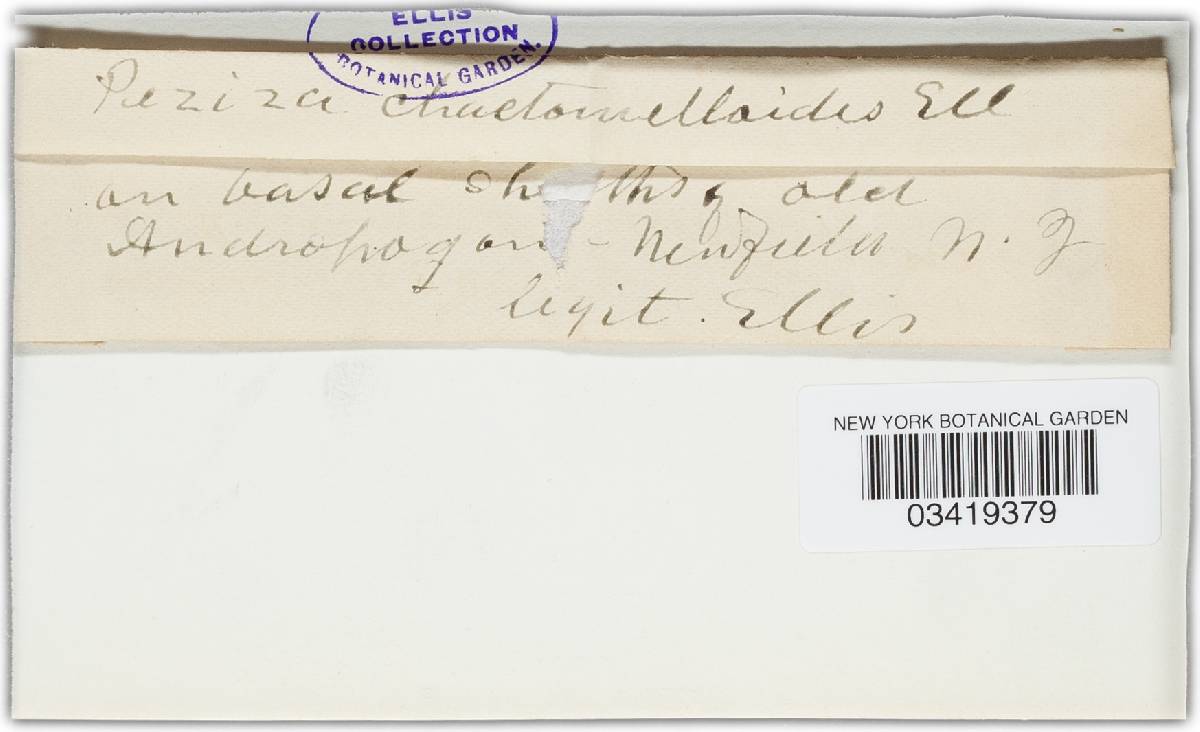 ELLIS
COLLECTION
BOTANICAL GARDEN.
Peziza chaetomelloides Ell
on basal sheaths of old
Andropogon - Newfield N. J
legit. Ellis
NEW YORK BOTANICAL GARDEN
03419379